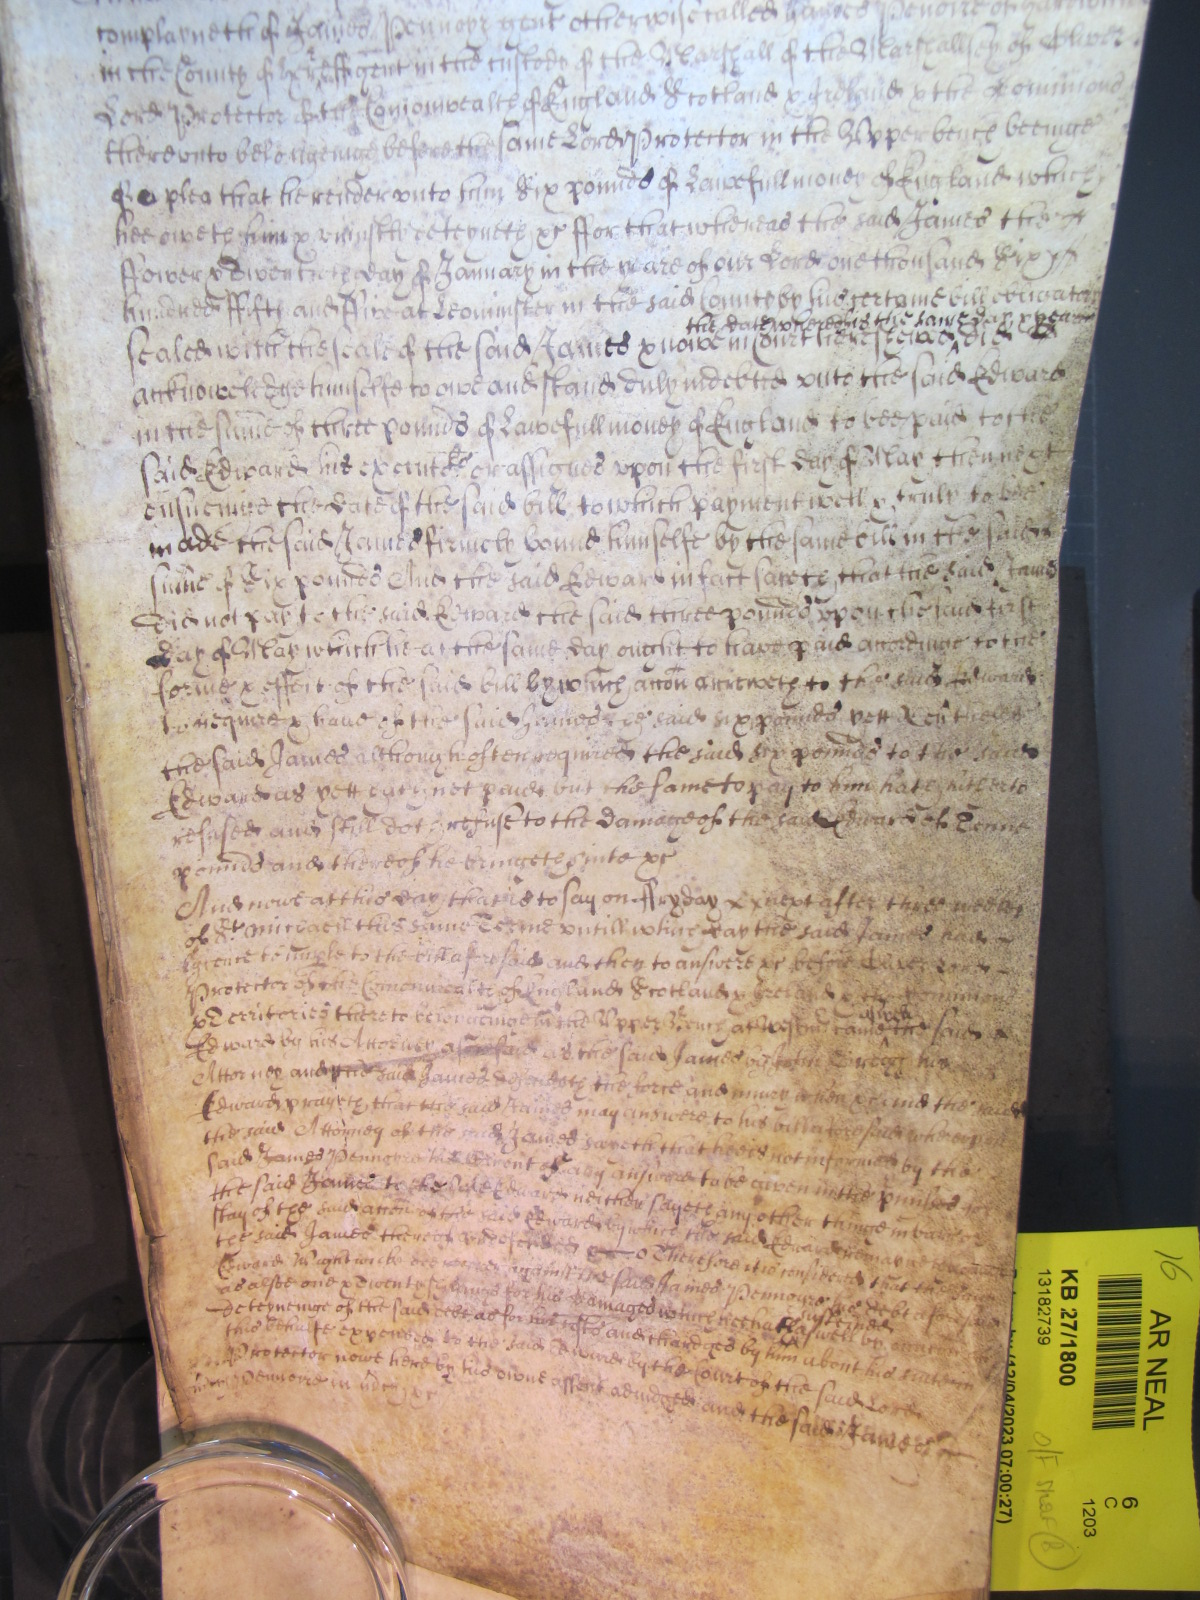 complayneth of James Pennoyr gent otherwise called James Penoire of
in the County of gent in the custody of the Marshall of the Marshallsey of Oliver
Lord Protector of the Comonwealth of England Scotland & Ireland & the dominions
thereunto belongeinge before the same Lord Protector in the Upper bench beeinge
of a plea that he render unto him Six pounds of Lawefull money of England which
hee oweth him & uniustly deteyneth &c ffor that whereas the said James the
ffower & Twentieth day of January in the yeare of our Lord one thousand Six
hundred ffifty and ffive at Leominster in the said County by his certaine bill obligatory
the date whereof is the same day & yeare
sealed with the seale of the said James & nowe in Court here shewed did
acknowledge himselfe to owe and stand duly indebted unto the said Edward
in the sume of three pounds of Lawefull money of England to bee paid to the
said Edward his executors or assignes upon the first day of May then next
ensueinge the date of the said bill to which payment well & truly to bee
made the said James firmely bound himselfe by the same bill in the said
sume of Six pounds And the said Edward in fact sayeth that the said James
did not pay to the said Edward the said three pounds upon the said first
day of May which he at the same day ought to have paid accordinge to the
forme & effect of the said bill by which accon accreweth to the said Edward
to require & have of the said James the said six pounds yett
the said James although often required the said six pounds to the said
Edward as yett hath not paid but the same to pay to him hath hitherto
refused and still doth refuse to the damage of the said Edward of Tenne
pounds and thereof he bringeth suite &c
And nowe at this day that is to say on ffryday next after three weekes
of St Michaell this same Terme untill which day the said James had
licence to imple to the bill aforesaid and then to answere &c before Oliver Lord
Protector of the Comonwealth of England Scotland & Ireland & the dominions
& Territories thereto belongeinge in the Upper Bench at Westmr came the said
aswell
Edward by his Attorney aforesaid as the said James by John his
Attorney and the said James defendeth the force and iniury when &c and the said
Edward prayeth that the said James may answere to his bill aforesaid whereupon
the said Attorney of the said James sayeth that hee is not informed by the
said James Pennoyre his Client of any answere to be given in the premises for
the said James to the said Edward neither sayeth any other thinge in barr or
stay of the said accon of the said Edward by which the said Edward remayneth
the said James thereof undefended Therefore it is considered that the said
Edward recover against the said James Pennoire his debt aforesaid
as alsoe one & Twenty shillings for his damages which hee hath susteined aswell by occasion of the
deteyneinge of the said debt as for his costs and chardges by him about his suite in
this behalfe expended to the said Edward by the Court of the said Lord
Protector nowe here by his owne assent adiudged and the said James
Pennoire in mercy &c
AR NEAL
KB 27/1800
13182739
6
C
1203
16
(12/04/2023 07:00:27)